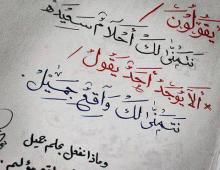 يَقُولُونَ /
نَتَمَنَّى لَكَ أَحْلَامً سَعِيدَه
* أَلَا يُوجَدُ أَحَدٌ يَقُولُ /
نَتَمَنَّى لَكَ وَاقِعٌ جَمِيلٌ .
وماذا نفعل بحلم جميل